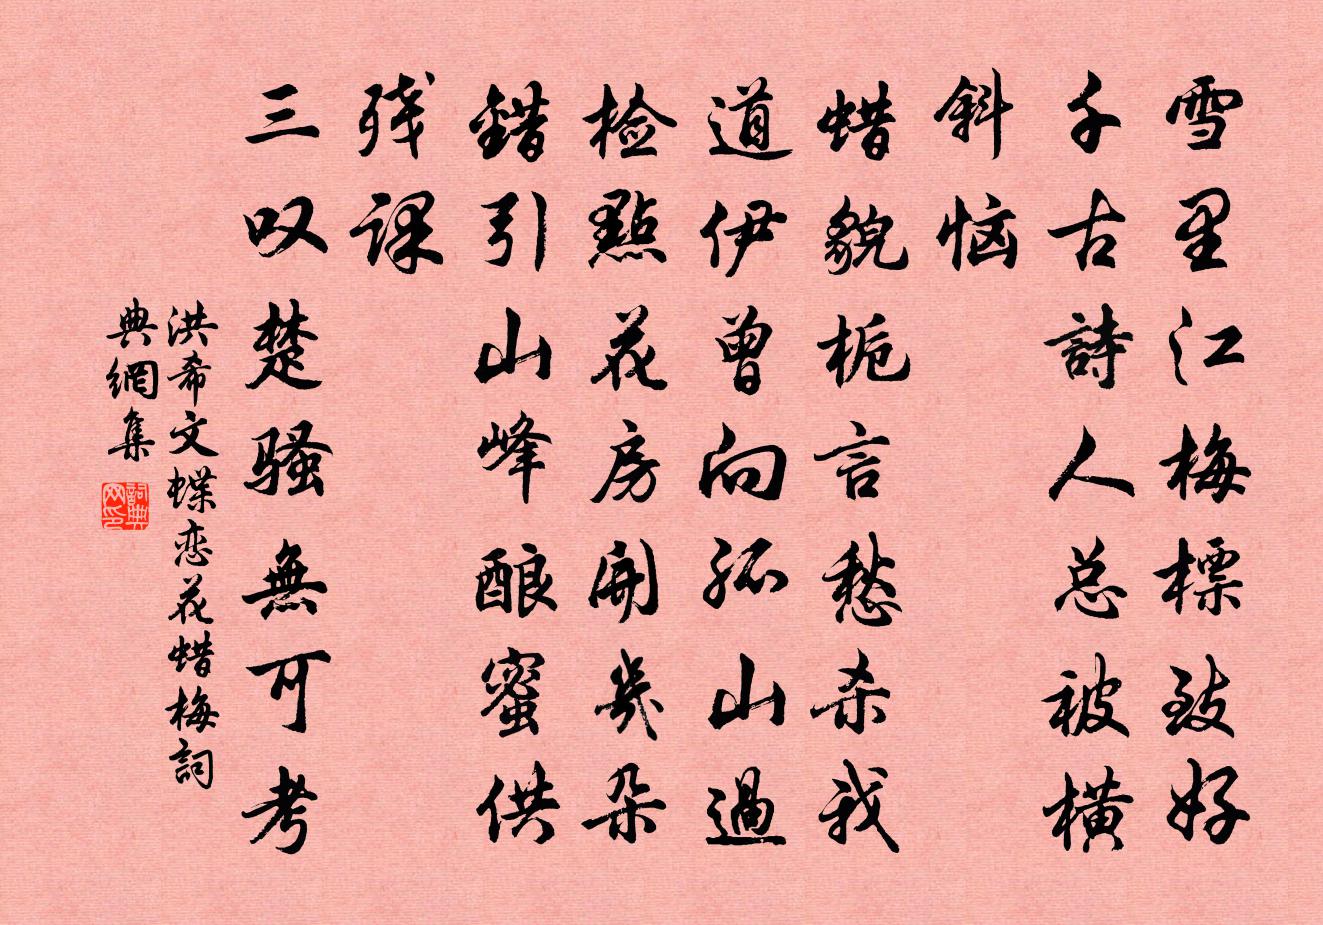 雪里江梅標致好
千古詩人总被橫
斜恼
蜡貌栀言愁杀我
道伊曾向孤山過
检點花房開幾朵
錯引山峰酿蜜供
残课
三叹楚骚無可考
洪希文蝶恋花蜡梅詞
典網集
詞典网印